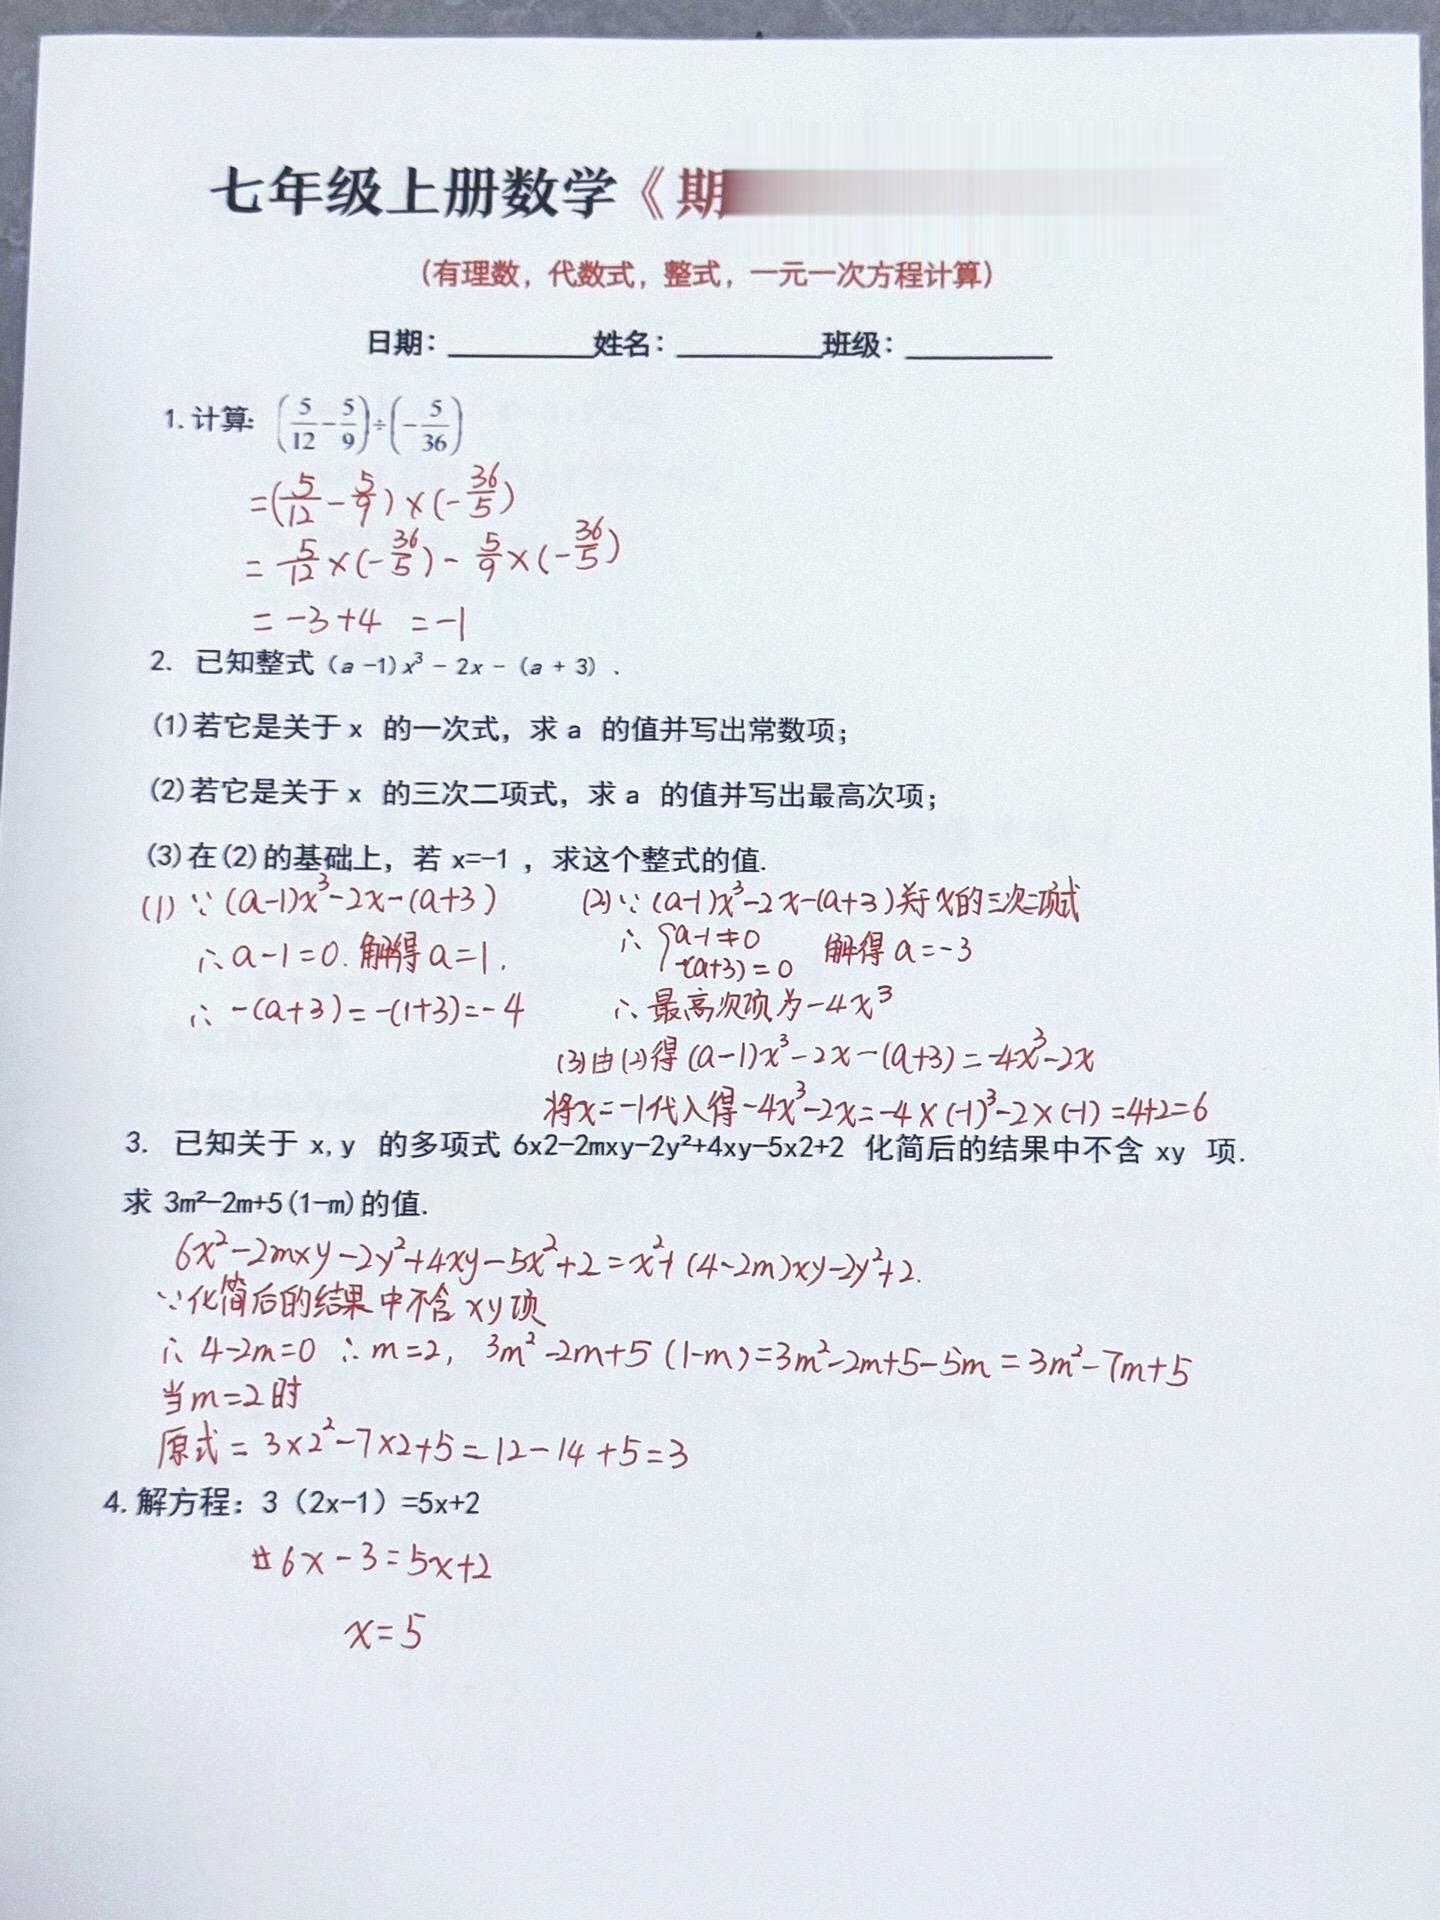 七年级上册数学《期
（有理数，代数式，整式，一元一次方程计算）
日期：__________姓名：__________班级：__________
1.计算: (5/12－5/9)÷(－5/36)
=(5/12－5/9)×(－36/5)
=5/12×(－36/5)－5/9×(－36/5)
=－3+4 =－1
2. 已知整式（a－1)x³－2x－（a＋3）.
(1)若它是关于 x 的一次式，求 a 的值并写出常数项；
(2)若它是关于 x 的三次二项式，求 a 的值并写出最高次项；
(3)在(2)的基础上，若 x=-1，求这个整式的值.
(1) ∵(a-1)x³-2x-(a+3)
∴a-1=0.解得a=1.
∴-(a+3)=-(1+3)=-4
(2)∵(a-1)x³-2x-(a+3)关于x的三次二项式
∴{a-1≠0
-(a+3)=0 解得a=-3
∴最高次项为-4x³
(3)由(2)得(a-1)x³-2x-(a+3)=-4x³-2x
将x=-1代入得-4x³-2x=-4×(-1)³-2×(-1)=4+2=6
3. 已知关于 x,y 的多项式 6x2-2mxy-2y²+4xy-5x2+2 化简后的结果中不含 xy 项.
求 3m²-2m+5(1-m)的值.
6x²-2mxy-2y²+4xy-5x²+2=x²+(4-2m)xy-2y²+2.
∵化简后的结果中不含xy项
∴4-2m=0 ∴m=2, 3m²-2m+5(1-m)=3m²-2m+5-5m=3m²-7m+5
当m=2时
原式=3×2²-7×2+5=12-14+5=3
4.解方程：3（2x-1）=5x+2
6x-3=5x+2
x=5